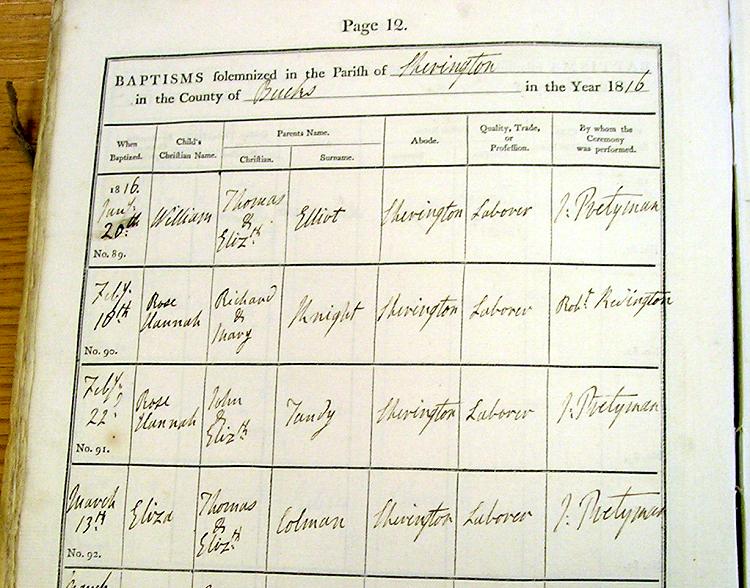 Page 12.
BAPTISMS solemnized in the Parish of Sherington
in the County of Bucks in the Year 1816
When Baptized. Child's Christian Name. Parents Name. Christian. Surname. Abode. Quality, Trade, or Profession. By whom the Ceremony was performed.
1816.
Jany.
20th
No. 89.
William
Thomas
&
Elizth
Elliot
Sherington
Laborer
J: Pretyman
Feby.
18th
No. 90.
Rose
Hannah
Richard
&
Mary
Knight
Sherington
Laborer
Robt.
Feby.
22d
No. 91.
Rose
Hannah
John
&
Elizth
Tandy
Sherington
Laborer
J: Pretyman
March
13th
No. 92.
Eliza
Thomas
&
Elizth
Colman
Sherington
Laborer
J: Pretyman